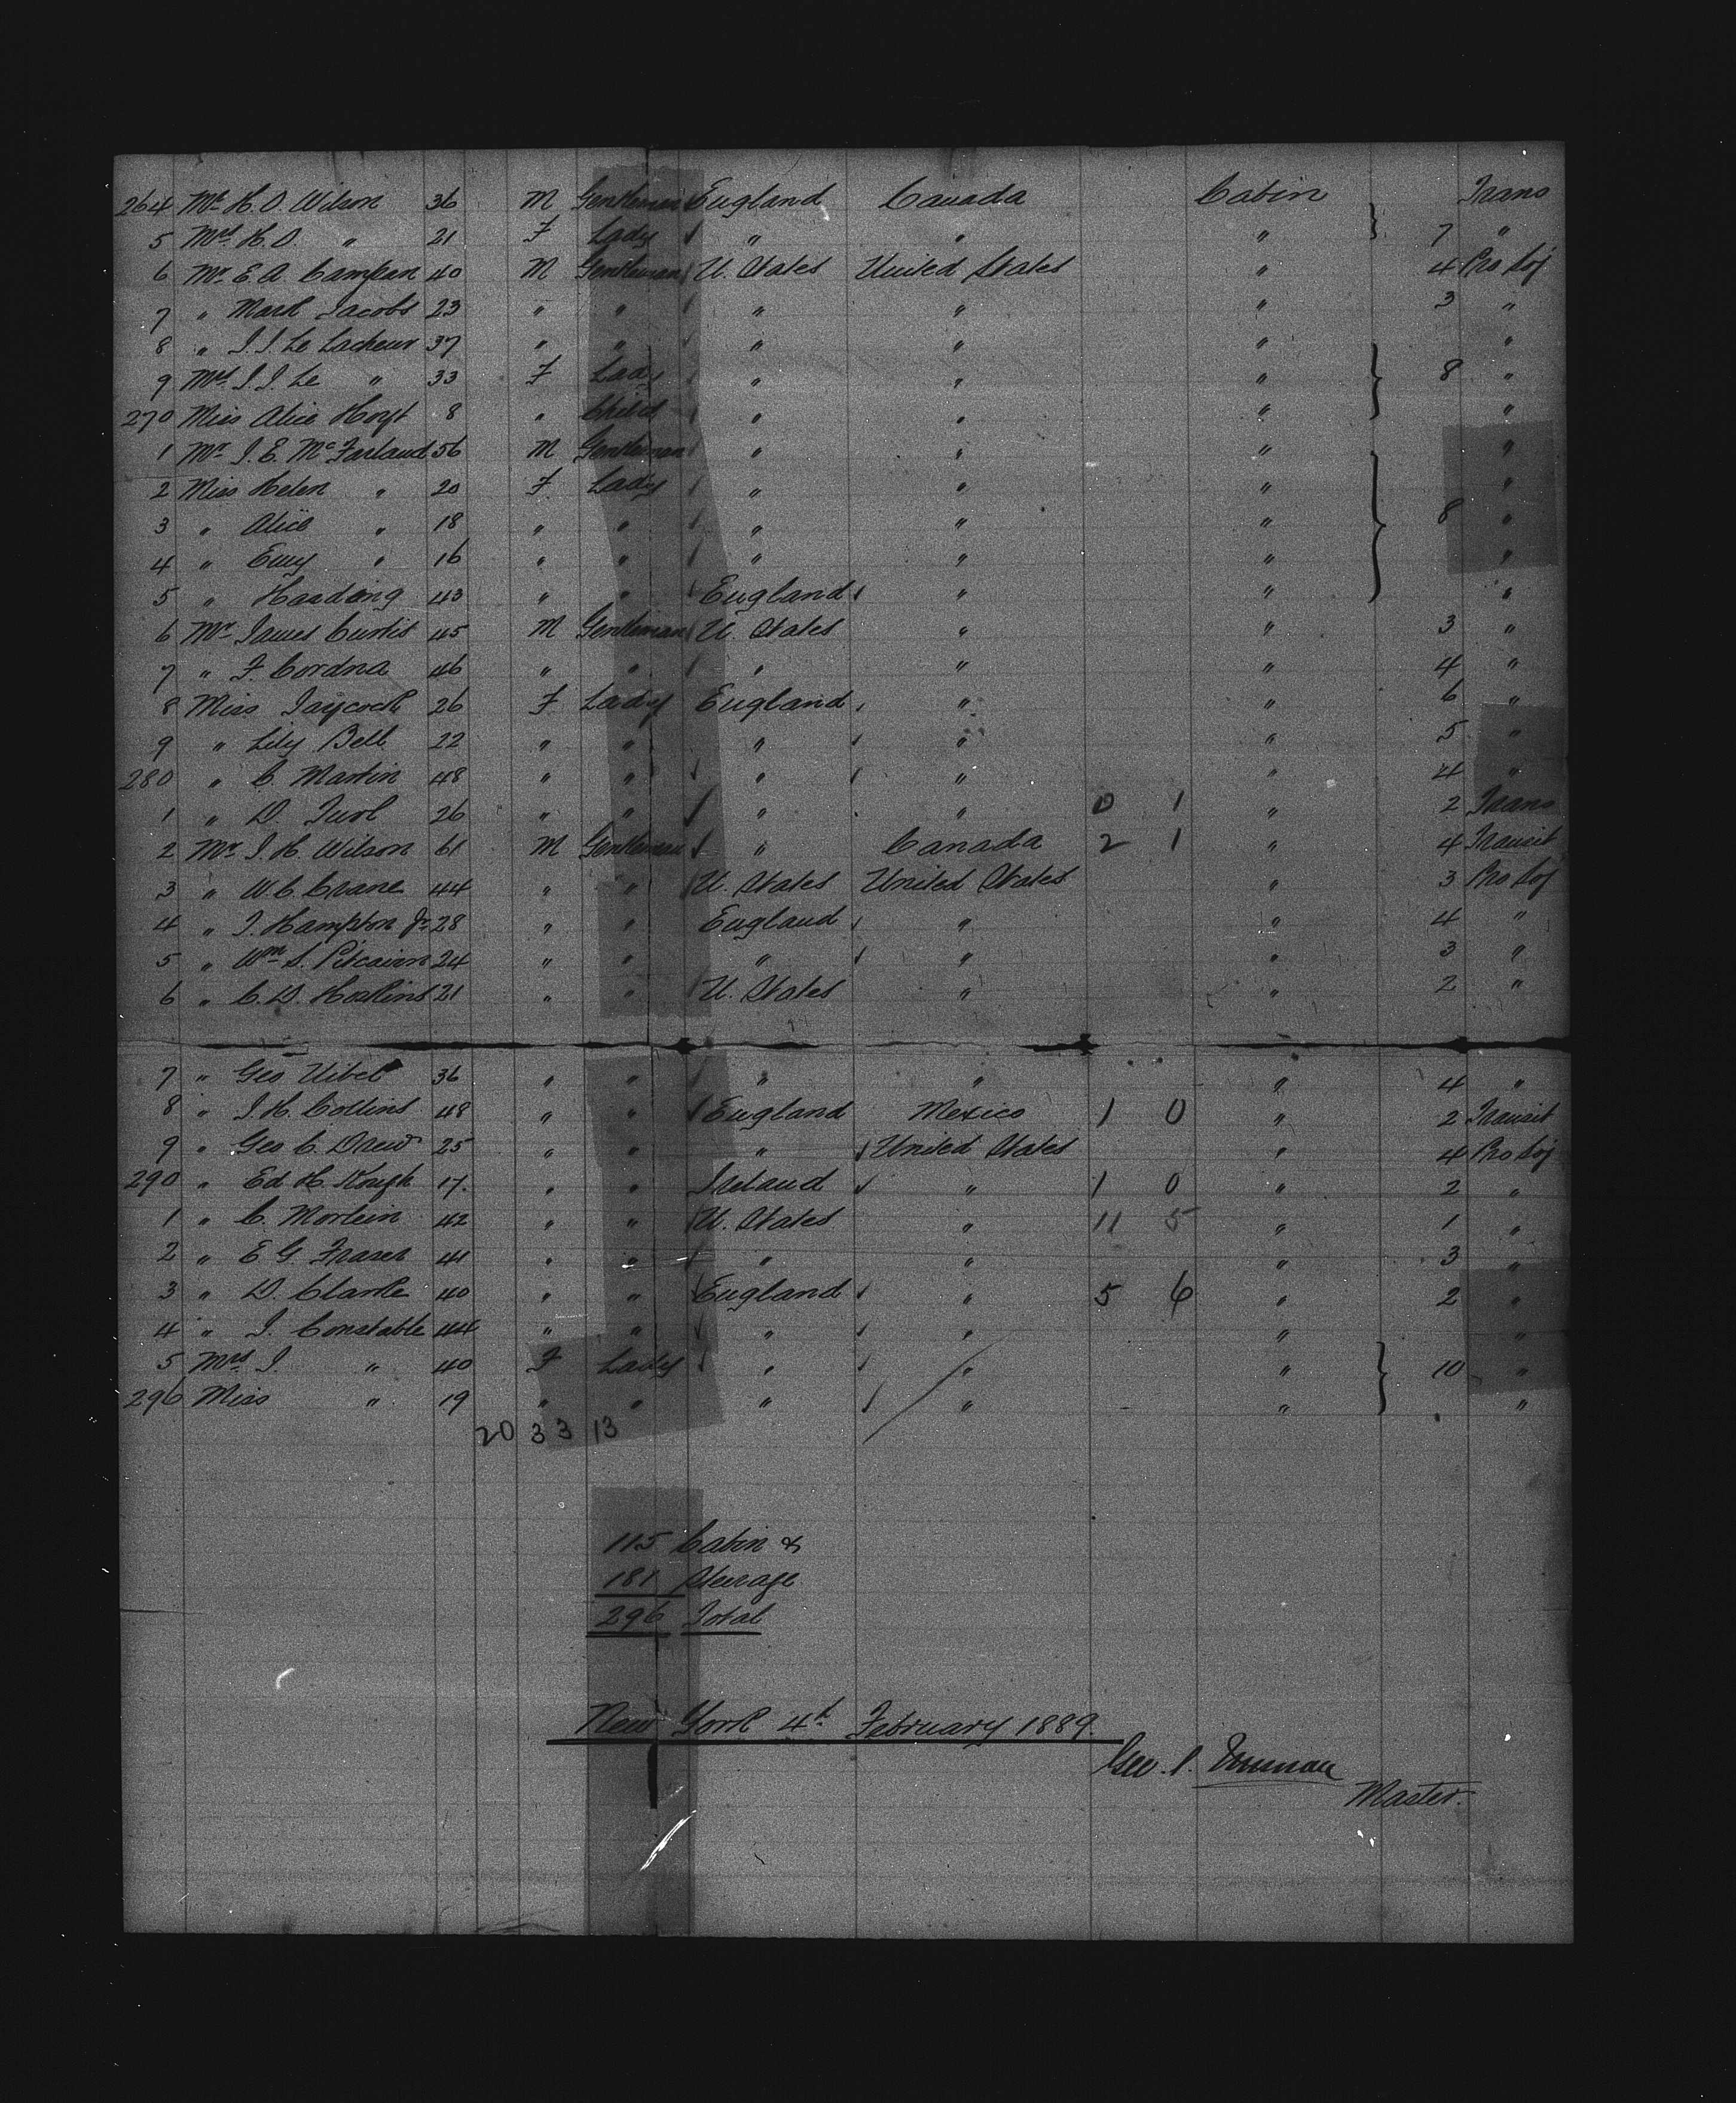 264 Mr. H. O. Wilson 36 M Gentleman England Canada Cabin Trans
5 Mrs. H. O. " 21 F Lady " " " 7 "
6 Mr. E. A. Campen 40 M Gentleman U. States United States " 4 Pro Soj
7 " Mark Jacobs 23 " " " " " 3 "
8 " J. J. Le Lacheur 37 " " " " " "
9 Mrs. J. J. Le " 33 F Lady " " " 8 "
270 Miss Alice Hoyt 8 " Child " " " "
1 Mr. J. E. McFarland 56 M Gentleman " " " "
2 Miss Helen " 20 F Lady " " " "
3 " Alice " 18 " " " " " 8 "
4 " Emy " 16 " " " " " "
5 " Harding 43 " " England " " "
6 Mr. James Curtis 45 M Gentleman U. States " " 3 "
7 " F. Cordna 46 " " " " " 4 "
8 Miss Jaycock 26 F Lady England " " 6 "
9 " Lily Bell 22 " " " " " 5 "
280 " C. Martin 48 " " " " " 4 "
1 " D. Turl 26 " " " " 0 1 " 2 Trans
2 Mr. J. H. Wilson 61 M Gentleman " Canada 2 1 " 4 Transit
3 " W. C. Crane 44 " " U. States United States " 3 Pro Soj
4 " J. Hampton Jr. 28 " " England " " 4 "
5 " Wm. S. Pitcairn 24 " " " " " 3 "
6 " C. D. Hoskins 21 " " U. States " " 2 "
7 " Geo Uibel 36 " " " " " 4 "
8 " J. H. Collins 48 " " England Mexico 1 0 " 2 Transit
9 " Geo C. Drew 25 " " " United States " 4 Pro Soj
290 " Ed H. Keough 17. " " Ireland " 1 0 " 2 "
1 " C. Morlein 42 " " U. States " 11 5 " 1 "
2 " E G. Fraser 41 " " " " " 3 "
3 " D. Clarke 40 " " England " 5 6 " 2 "
4 " J. Constable 44 " " " " " "
5 Mrs J. " 40 F Lady " " " 10 "
296 Miss " 19 " " " " " "
20 33 13
115 Cabin &
181 Steerage
296 Total
New York 4th February 1889.
Geo.
Master.